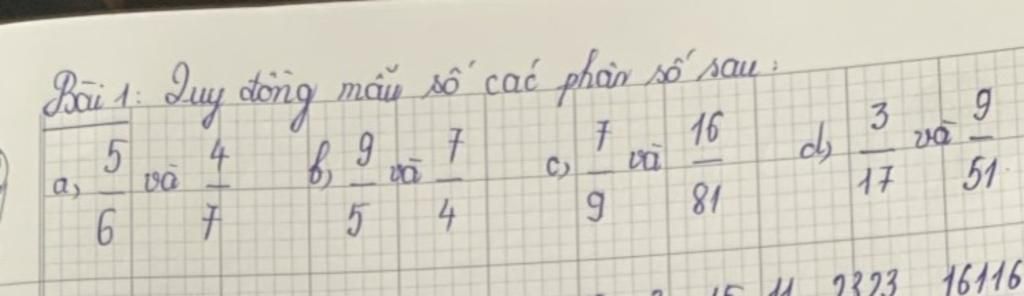 Bài 1: Quy đồng mẫu số các phân số sau:
a, 5/6 và 4/7 b, 9/5 và 7/4 c, 7/9 và 16/81 d, 3/17 và 9/51.
15 11 2323 16116